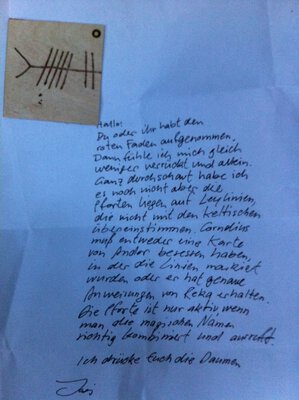 Hallo!
Du oder ihr habt den
roten Faden aufgenommen.
Dann fühle ich mich gleich
weniger verrückt und allein.
Ganz durchschaut habe ich
es noch nicht aber die
Pforten liegen auf Leylinien,
die nicht mit den keltischen
übereinstimmen. Cornelius
muß entweder eine Karte
von Andor besessen haben,
in der die Linien markiert
wurden oder er hat genaue
Anweisungen von Reka erhalten.
Die Pforte ist nur aktiv wenn
man die magischen Namen
richtig kombiniert und ausruft.
Ich drücke Euch die Daumen